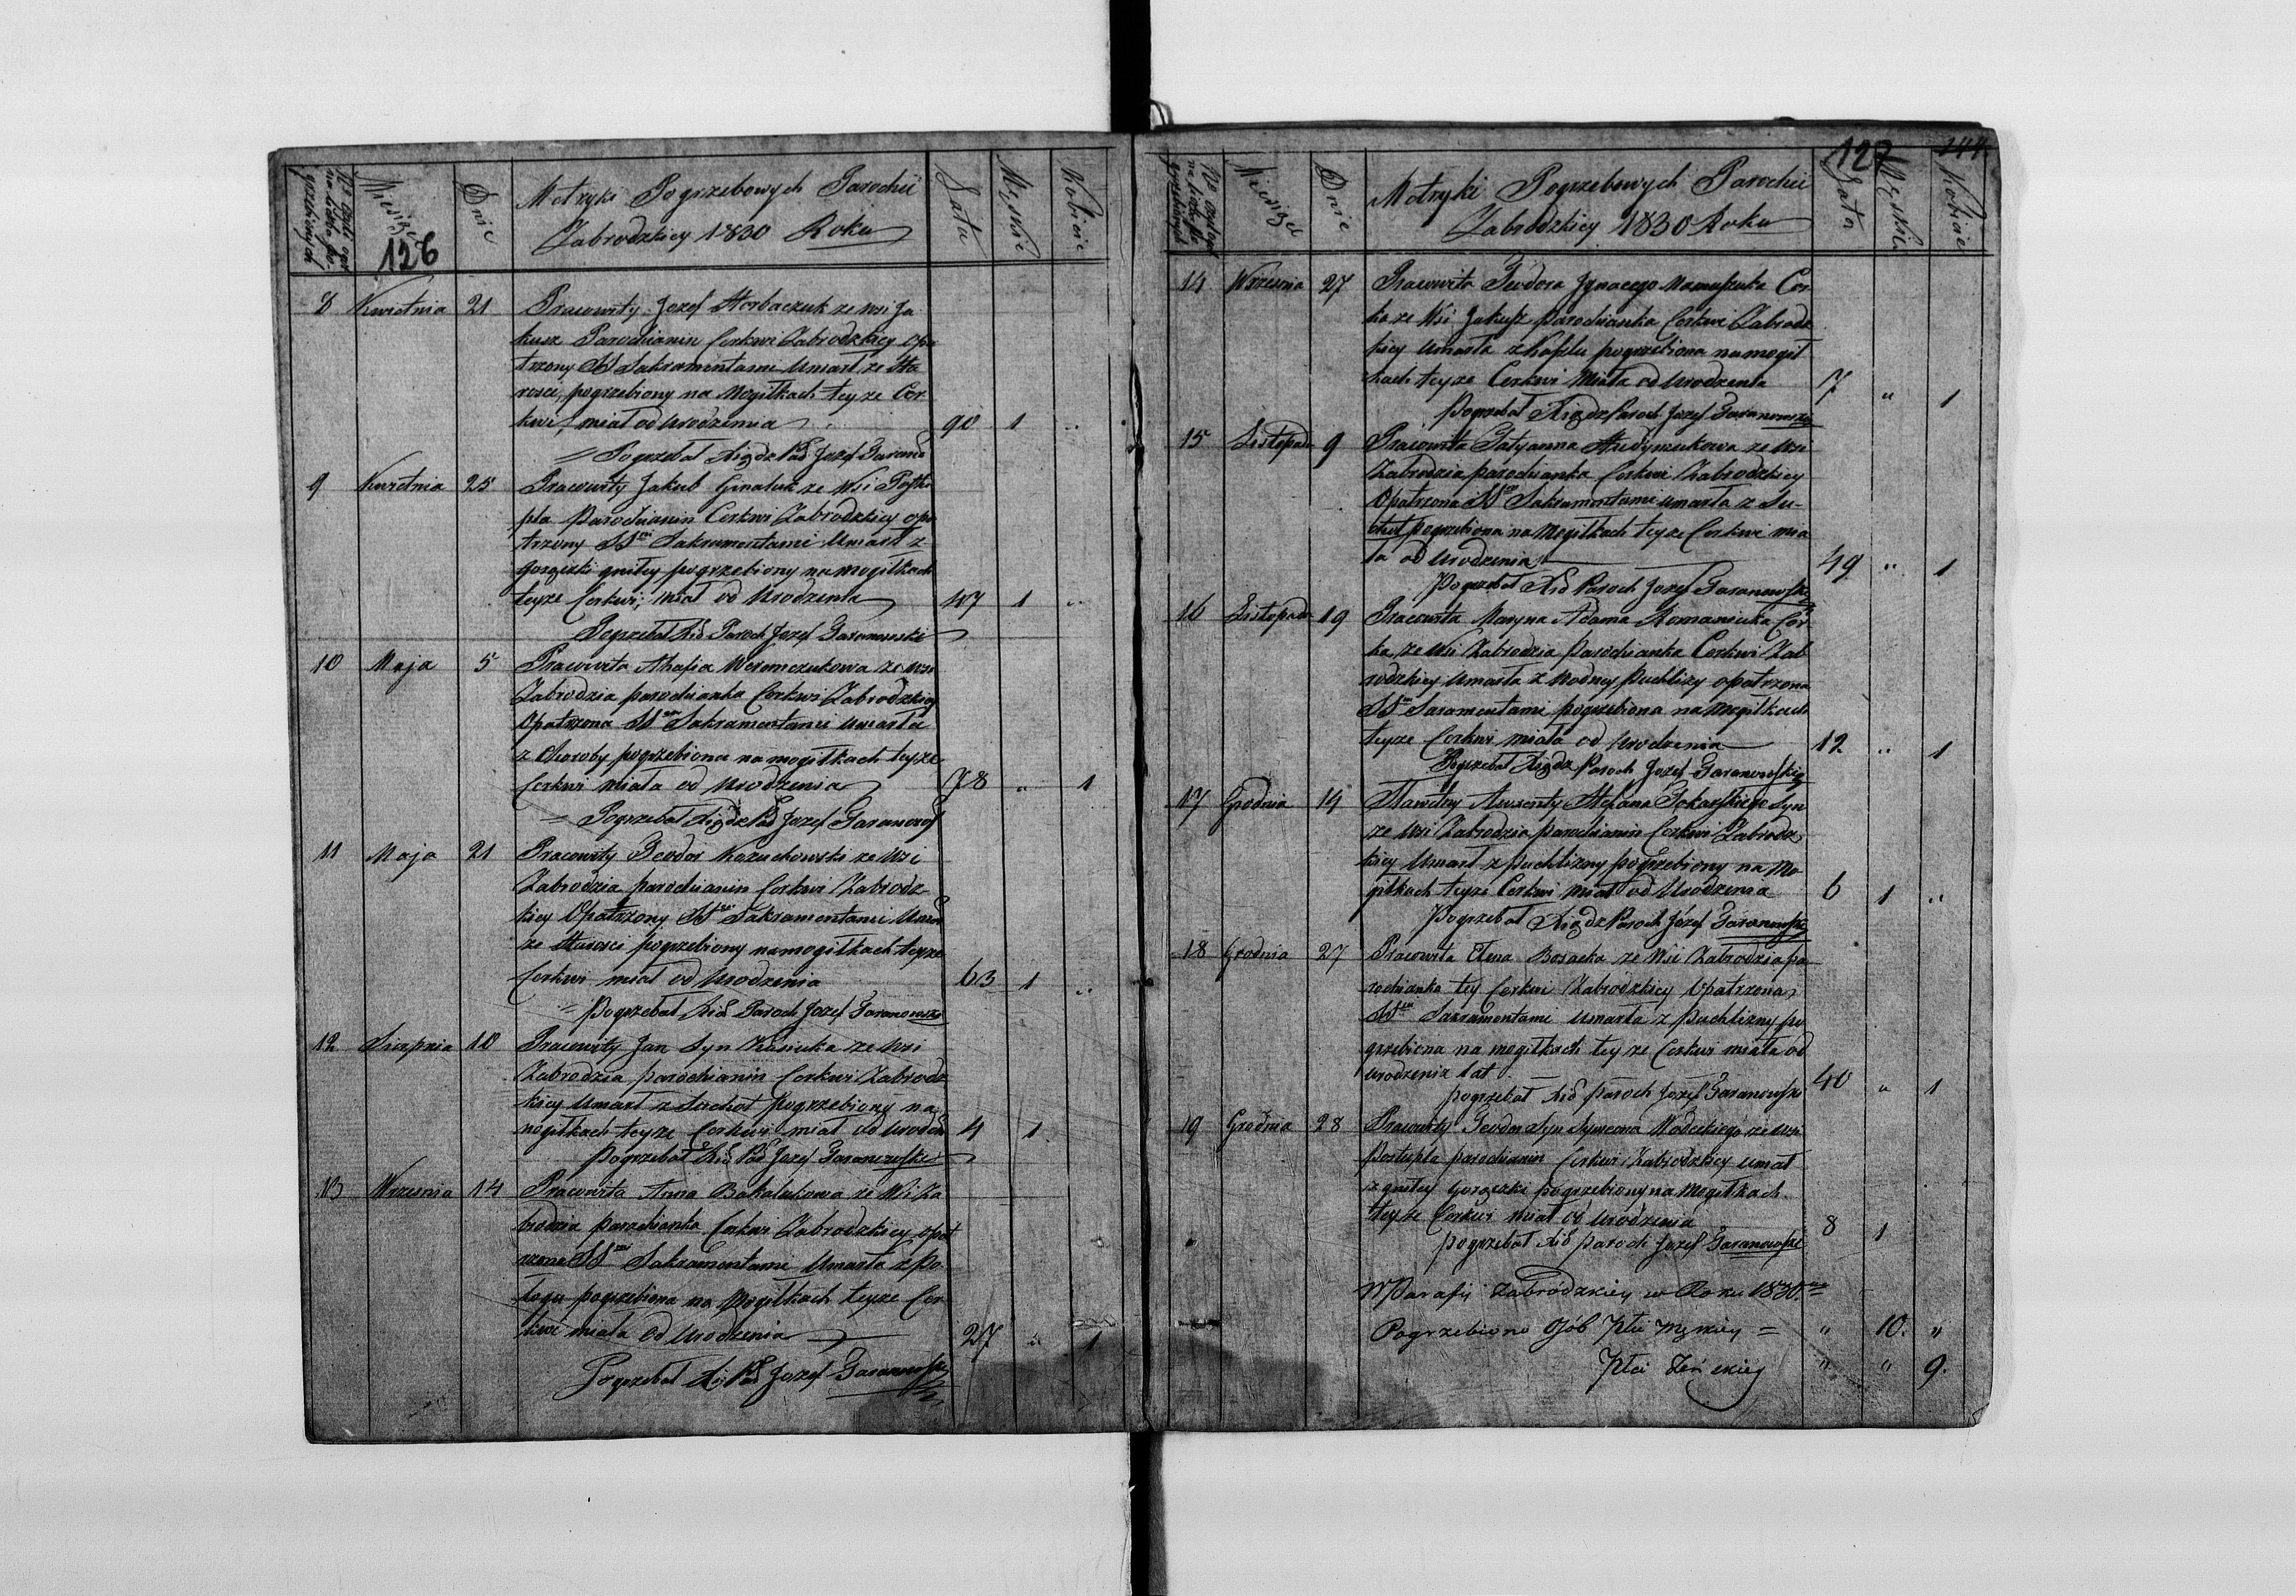 126
Miesiąc
Dnie
Metryki Pogrzebowych Parochii
Zabrodzkiey 1830 Roku
Lata
Męskie
Kobiecie
8 Kwietnia 21 Pracowity Jozef Horbaczuk ze wsi Ja
kusz Parochianin Cerkwi Zabrodzkiey opa
trzony SS Sakramentami Umarł ze Sta
rosci, pogrzebiony na Mogiłkach teyze Cer
kwi, miał od Urodzenia 90 1 "
Pogrzebał Xiądz Jozef
9 Kwietnia 25 Pracowity Jakub ze Wsi
pla Parochianin Cerkwi Zabrodzkiey opa
trzony SSmi Sakramentami Umarł z
gorączki gniłey pogrzebiony na mogiłkach
teyze Cerkwi; miał od Urodzenia 47 1 "
Pogrzebał Xid Paroch Jozef Garanowski
10 Maja 5 Pracowita Ahafia ze wsi
Zabrodzia parochianka Cerkwi Zabrodzkiey
Opatrzona SSmi Sakramentami umarła
z Choroby, pogrzebiona na mogiłkach teyze
Cerkwi miała od Urodzenia 78 " 1
Pogrzebał Xiądz Jozef
11 Maja 21 Pracowity Teodor Kozuchowski ze Wsi
Zabrodzia parochianin Cerkwi Zabrodz
kiey Opatrzony SSmi Sakramentami
ze Starosci pogrzebiony na mogiłkach teyze
Cerkwi miał od Urodzenia 63 1 "
Pogrzebał Xid Paroch Jozef Garanowski
12 Sierpnia 10 Pracowity Jan Syn ze Wsi
Zabrodzia parochianin Cerkwi Zabrodz
kiey Umarł z Suchot pogrzebiony na
mogiłkach teyze Cerkwi miał od 4 1
Pogrzebał Xid Jozef Garanowski
13 Wrzesnia 14 Pracowita Anna Bakalukowa ze Wsi Za
brodzia parochianka Cerkwi Zabrodzkiey opat
rzona SSmi Sakramentami Umarła z Po
łogu pogrzebiona na Mogiłkach teyze Cer
kwi miała od Urodzenia 27 " 1
Pogrzebał Jozef Garanowski
127
144
Miesiąc
Dnie
Metryki Pogrzebowych Parochii
Zabrodzkiey 1830 Roku
Lata
Męskie
Kobiecie
14 Wrzesnia 27 Pracowita Teodora Jgnacego Cor
ka ze Wsi Jakusz parochianka Cerkwi Zabrodz
kiey Umarła z Kaszlu pogrzebiona na mogił
kach teyze Cerkwi Miała od Urodzenia 7 " 1
Pogrzebał Xiądz Paroch Jozef Garanowski
15 Listopada 9 Pracowita Tatyanna ze wsi
Zabrodzia parochianka Cerkwi Zabrodzkiey
Opatrzona SSmi Sakramentami umarła z Su-
chot pogrzebiona na Mogiłkach teyze Cerkwi mia
ła od Urodzenia 49 " 1
Pogrzebał Xid Paroch Jozef Garanowski
16 Listopada 19 Pracowita Maryna Adama Romaniuka Cor
ka, ze Wsi Zabrodzia Parochianka Cerkwi Zab
rodzkiey Umarła z Wodney Puchlizy opatrzona
SSmi Saramentami pogrzebiona na Mogiłkach
teyze Cerkwi miała od Urodzenia 12 " 1
Pogrzebał Xiądz Paroch Jozef Garanowski
17 Grudnia 14 Sławetny Auxenty Stefana Tokarskiego Syn
ze Wsi Zabrodzia parochianin Cerkwi Zabrodz
kiey Umarł z puchlizny pogrzebiony na Mo
giłkach teyze Cerkwi Miał od Urodzenia 6 1 "
Pogrzebał Xiądz Paroch Józef Garanowski
18 Grudnia 27 Pracowita Elena Bosacka ze Wsi Zabrodzia pa
rochianka tey Cerkwi Zabrodzkiey Opatrzona
SSmi Sakramentami umarła z Puchlizny po
grzebiona na mogiłkach tey ze Cerkwi miała od
urodzenia lat 40 " 1
pogrzebał Xid paroch Jozef Garanowski
19 Grudnia 28 Pracowity Teodor Syn Symeona Wodeckiego ze wsi
Postupla parochianin Cerkwi Zabrodzkiey umał
z gniłey Gorączki pogrzebiony na Mogiłkach
teyze Cerkwi miał od Urodzenia 8 1
pogrzebał Xid paroch Jozef Garanowski
W Parafii Zabródzkiey w Roku 1830.
Pogrzebiono Osób Płci Męzkiey = " 10. "
Płci Żeńskiey " " 9.